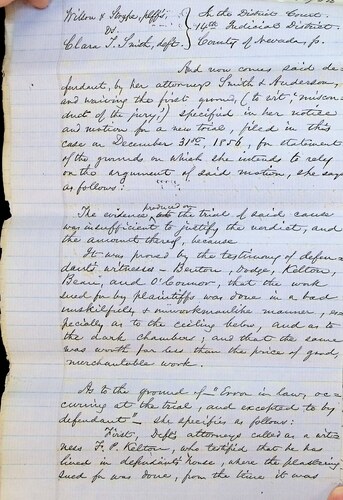 Wilson & Stoype, plffs,
vs.
Clara T. Smith, deft.
In the District Court,
14th Judicial District,
County of Nevada, ss.
And now comes said de-
fendant, by her attorneys Smith & Anderson,
and waiving the first ground, (to wit, "miscon-
duct of the jury,") specified in her notice
and motion for a new trial, filed in this
case on December 31st, 1856, for statement
of the grounds on which she intends to rely
on the argument of said motion, she says
as follows:
The evidence produced on the trial of said cause
was insufficient to justify the verdict, and
the amount thereof, because
It was proved by the testimony of defen-
dant's witnesses – Benton, Dodge, Kelton,
Bean, and O'Connor, that the work
sued for by plaintiffs was done in a bad
unskilfull, & unworkmanlike manner, es-
pecially as to the ceiling below, and as to
the dark chambers; and that the same
was worth far less than the price of good,
merchantable work.
As to the ground of – "Error in law, oc-
curring at the trial, and excepted to by
defendant" – she specifies as follows:
First, Deft's attorneys called as a wit-
ness F. P. Kelton, who testified that he has
lived in defendant's house, where the plastering
sued for was done, from the time it was